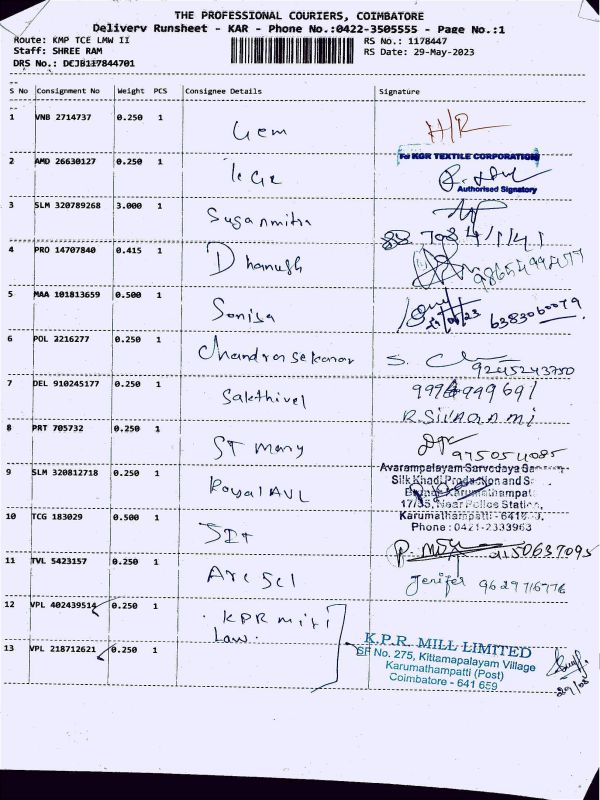 THE PROFESSIONAL COURIERS, COIMBATORE
Delivery Runsheet - KAR - Phone No.:0422-3505555 - Page No.:1
Route: KMP TCE LMW II RS No.: 1178447
Staff: SHREE RAM RS Date: 29-May-2023
DRS No.: DCJB117844701
S No Consignment No Weight PCS Consignee Details Signature
1 VNB 2714737 0.250 1 Gem H/R
2 AMD 26630127 0.250 1
For KGR TEXTILE CORPORATION
Authorised Signatory
3 SLM 320789268 3.000 1 Suganmitra
4 PRO 14707840 0.415 1 Dhanush
5 MAA 101813659 0.500 1 Sonisa 6383060079
6 POL 2216277 0.250 1 Chandrasekanar 9245243750
7 DEL 910245177 0.250 1 Sakthivel
8 PRT 705732 0.250 1 ST Mary 9750511085
9 SLM 320812718 0.250 1 Royal AVL
Avarampalayam Sarvodaya
Silk Khadi Production and
Karumathampat
17/35, Near Police Station,
Karumathampatti - 6416
Phone : 0421-2333963
10 TCG 183029 0.500 1
11 TVL 5423157 0.250 1 Jenifer 9629716776
12 VPL 402439514 0.250 1 KPR Mill
Law.
13 VPL 218712621 0.250 1
K.P.R. MILL LIMITED
SF No. 275, Kittamapalayam Village
Karumathampatti (Post)
Coimbatore - 641 659
29/05